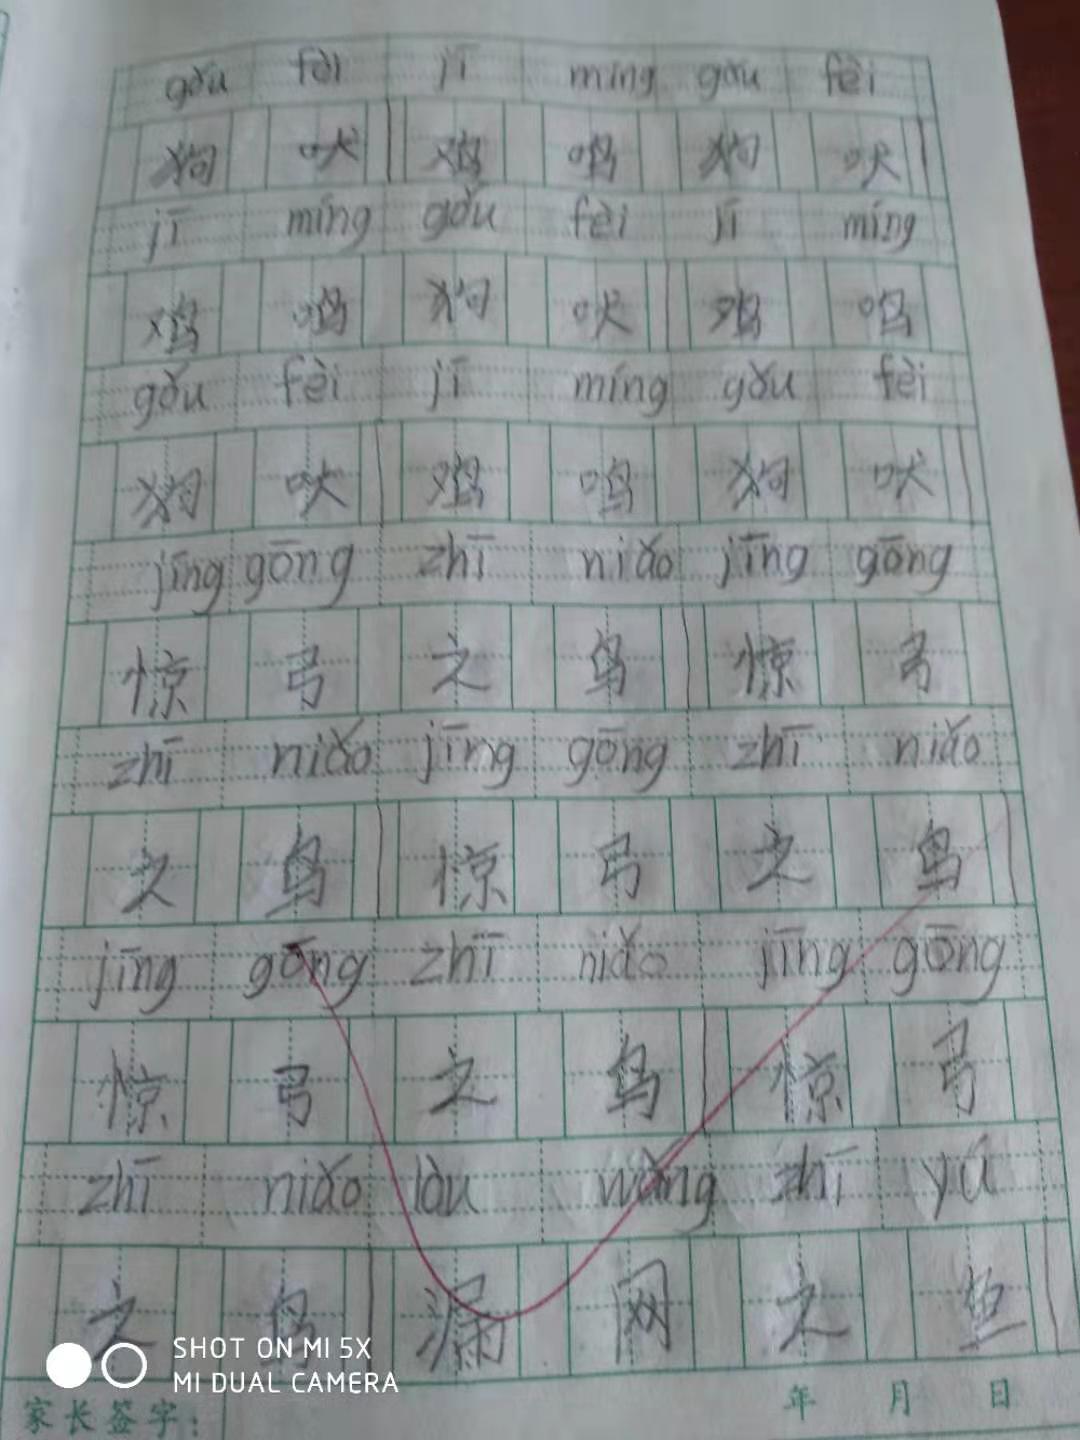 gǒu fèi jī míng gǒu fèi
狗 吠 鸡 鸣 狗 吠
jī míng gǒu fèi jī míng
鸡 鸣 狗 吠 鸡 鸣
gǒu fèi jī míng gǒu fèi
狗 吠 鸡 鸣 狗 吠
jīng gōng zhī niǎo jīng gōng
惊 弓 之 鸟 惊 弓
zhī niǎo jīng gōng zhī niǎo
之 鸟 惊 弓 之 鸟
jīng gōng zhī niǎo jīng gōng
惊 弓 之 鸟 惊 弓
zhī niǎo lòu wǎng zhī yú
之 鸟 漏 网 之 鱼
SHOT ON MI 5X
MI DUAL CAMERA
家长签字： 年 月 日